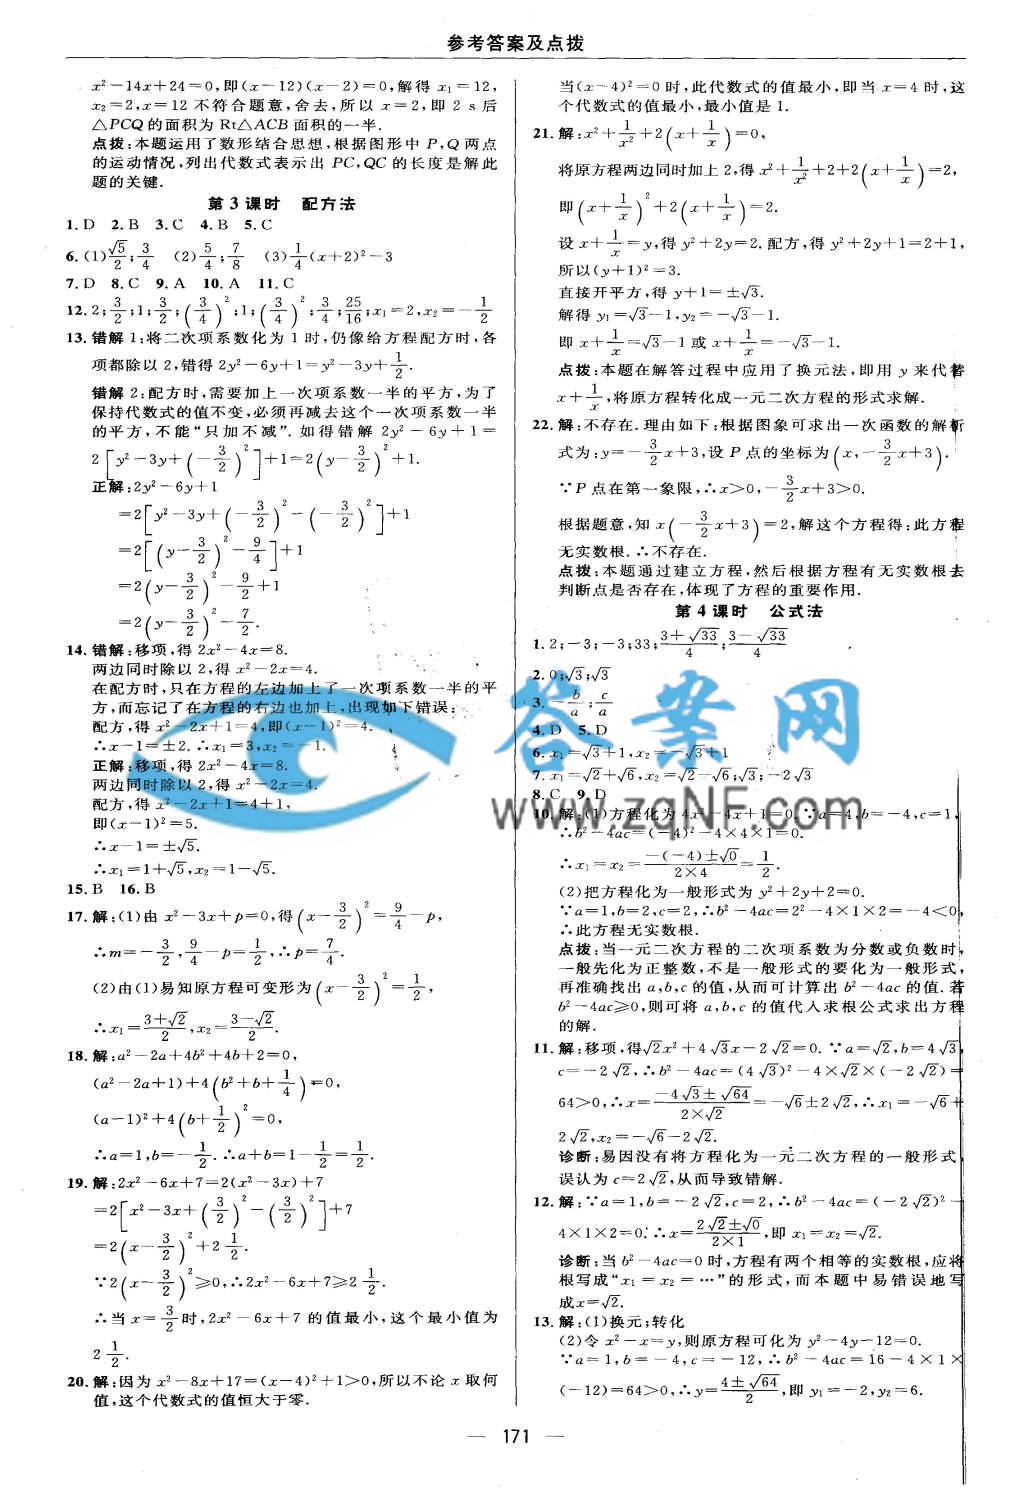 参考答案及点拨
x²-14x+24=0,即(x-12)(x-2)=0,解得 x₁=12,
x₂=2,x=12 不符合题意,舍去,所以 x=2,即 2 s 后
△PCQ的面积为 Rt△ACB 面积的一半.
点拨:本题运用了数形结合思想,根据图形中 P,Q 两点
的运动情况,列出代数式表示出 PC,QC的长度是解此
题的关键.
第3课时 配方法
1. D 2. B 3. C 4. B 5. C
6. (1)√5/2;3/4 (2)5/4;7/8 (3)1/4(x+2)²-3
7. D 8. C 9. A 10. A 11. C
12. 2;3/2;1;3/2;(3/4)²;1;(3/4)²;3/4;25/16;x₁=2,x₂=-1/2
13. 错解 1:将二次项系数化为 1 时,仍像给方程配方时,各
项都除以 2,错得 2y²-6y+1=y²-3y+1/2.
错解 2:配方时,需要加上一次项系数一半的平方,为了
保持代数式的值不变,必须再减去这个一次项系数一半
的平方,不能“只加不减”. 如得错解 2y²-6y+1=
2[y²-3y+(-3/2)²]+1=2(y-3/2)²+1.
正解:2y²-6y+1
=2[y²-3y+(-3/2)²-(-3/2)²]+1
=2[(y-3/2)²-9/4]+1
=2(y-3/2)²-9/2+1
=2(y-3/2)²-7/2.
14. 错解:移项,得 2x²-4x=8.
两边同时除以 2,得 x²-2x=4.
在配方时,只在方程的左边加上了一次项系数一半的平
方,而忘记了在方程的右边也加上,出现如下错误:
配方,得 x²-2x+1=4,即(x-1)²=4.
∴x-1=±2.∴x₁=3,x₂=-1.
正解:移项,得 2x²-4x=8.
两边同时除以 2,得 x²-2x=4.
配方,得 x²-2x+1=4+1,
即(x-1)²=5.
∴x-1=±√5.
∴x₁=1+√5,x₂=1-√5.
15. B 16. B
17. 解:(1)由 x²-3x+p=0,得(x-3/2)²=9/4-p,
∴m=-3/2,9/4-p=1/2,∴p=7/4.
(2)由(1)易知原方程可变形为(x-3/2)²=1/2,
∴x₁=(3+√2)/2,x₂=(3-√2)/2.
18. 解:a²-2a+4b²+4b+2=0,
(a²-2a+1)+4(b²+b+1/4)=0,
(a-1)²+4(b+1/2)²=0,
∴a=1,b=-1/2.∴a+b=1-1/2=1/2.
19. 解:2x²-6x+7=2(x²-3x)+7
=2[x²-3x+(3/2)²-(3/2)²]+7
=2(x-3/2)²+2 1/2.
∵2(x-3/2)²≥0,∴2x²-6x+7≥2 1/2.
∴当 x=3/2时,2x²-6x+7 的值最小,这个最小值为
2 1/2.
20. 解:因为 x²-8x+17=(x-4)²+1>0,所以不论 x 取何
值,这个代数式的值恒大于零.
当(x-4)²=0 时,此代数式的值最小,即当 x=4 时,这
个代数式的值最小,最小值是 1.
21. 解:x²+1/x²+2(x+1/x)=0,
将原方程两边同时加上 2,得 x²+1/x²+2+2(x+1/x)=2,
即(x+1/x)²+2(x+1/x)=2.
设 x+1/x=y,得 y²+2y=2. 配方,得 y²+2y+1=2+1,
所以(y+1)²=3.
直接开平方,得 y+1=±√3.
解得 y₁=√3-1,y₂=-√3-1.
即 x+1/x=√3-1 或 x+1/x=-√3-1.
点拨:本题在解答过程中应用了换元法,即用 y 来代替
x+1/x,将原方程转化成一元二次方程的形式求解.
22. 解:不存在. 理由如下:根据图象可求出一次函数的解析
式为:y=-3/2x+3,设 P 点的坐标为(x,-3/2x+3).
∵P 点在第一象限,∴x>0,-3/2x+3>0.
根据题意,知 x(-3/2x+3)=2,解这个方程得:此方程
无实数根.∴不存在.
点拨:本题通过建立方程,然后根据方程有无实数根去
判断点是否存在,体现了方程的重要作用.
第4课时 公式法
1. 2;-3;-3;33;(3+√33)/4;(3-√33)/4
2. 0;√3;√3
3. -b/a;c/a
4. D 5. D
6. x₁=√3+1,x₂=-√3+1
7. x₁=√2+√6,x₂=√2-√6;√3;-2√3
8. C 9. D
10. 解:(1)方程化为 4x²-4x+1=0.∵a=4,b=-4,c=1,
∴b²-4ac=(-4)²-4×4×1=0.
∴x₁=x₂=(-(-4)±√0)/(2×4)=1/2.
(2)把方程化为一般形式为 y²+2y+2=0.
∵a=1,b=2,c=2,∴b²-4ac=2²-4×1×2=-4<0,
∴此方程无实数根.
点拨:当一元二次方程的二次项系数为分数或负数时,
一般先化为正整数,不是一般形式的要化为一般形式,
再准确找出 a,b,c 的值,从而可计算出 b²-4ac 的值. 若
b²-4ac≥0,则可将 a,b,c 的值代入求根公式求出方程
的解.
11. 解:移项,得√2x²+4√3x-2√2=0.∵a=√2,b=4√3,
c=-2√2,∴b²-4ac=(4√3)²-4×√2×(-2√2)=
64>0,∴x=(-4√3±√64)/(2×√2)=-√6±2√2,∴x₁=-√6+
2√2,x₂=-√6-2√2.
诊断:易因没有将方程化为一元二次方程的一般形式,
误认为 c=2√2,从而导致错解.
12. 解:∵a=1,b=-2√2,c=2,∴b²-4ac=(-2√2)²-
4×1×2=0.∴x=(2√2±√0)/(2×1),即 x₁=x₂=√2.
诊断:当 b²-4ac=0 时,方程有两个相等的实数根,应将
根写成“x₁=x₂=…”的形式,而本题中易错误地写
成x=√2.
13. 解:(1)换元;转化
(2)令 x²-x=y,则原方程可化为 y²-4y-12=0.
∵a=1,b=-4,c=-12,∴b²-4ac=16-4×1×
(-12)=64>0,∴y=(4±√64)/2,即 y₁=-2,y₂=6.
答案网
www.zqNF.com
— 171 —